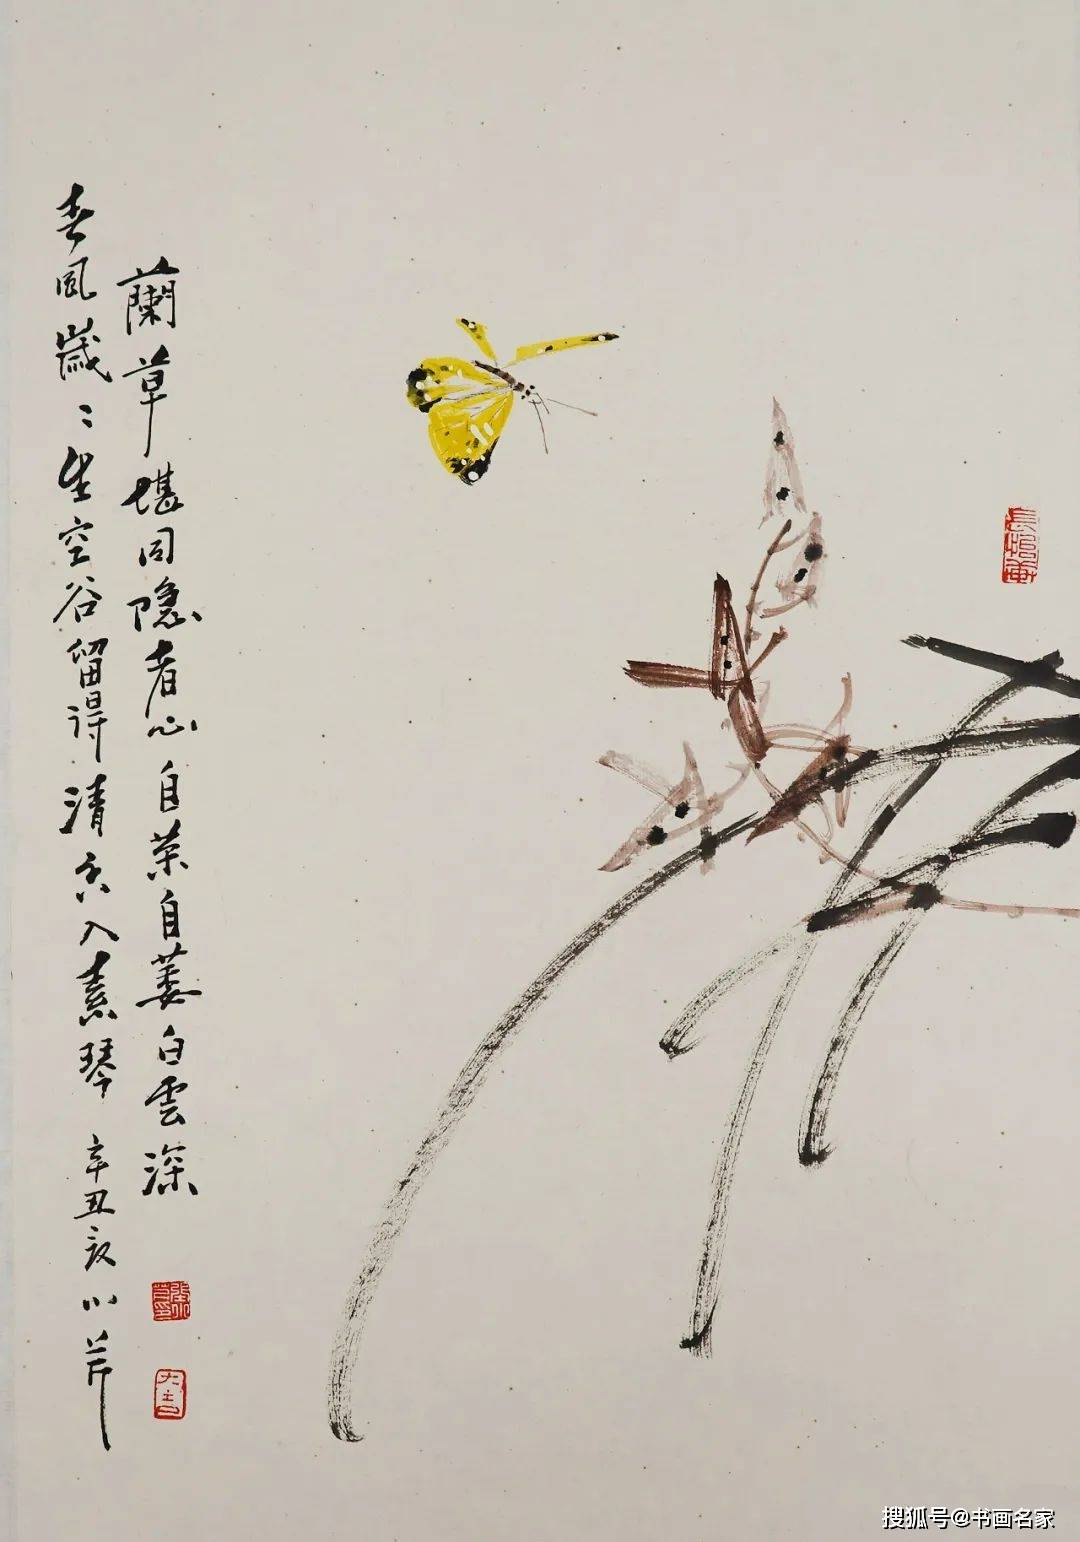 蘭草堪同隐者心自荣自萎白雲深
春風歲〻生空谷留得清香入素琴 辛丑 芹
搜狐号@书画名家